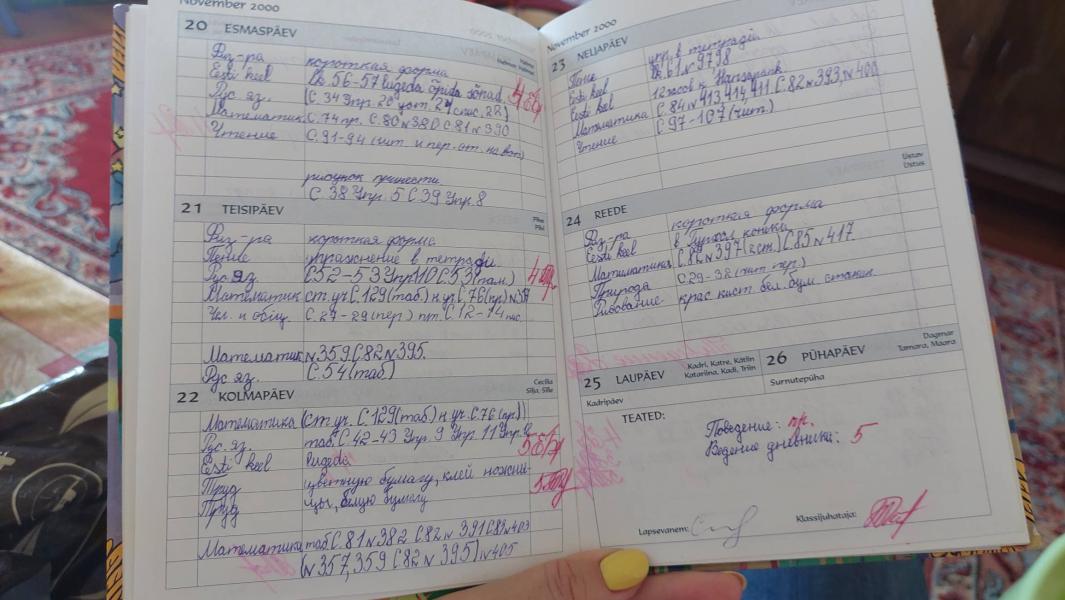 November 2000
20 ESMASPÄEV
Физ-ра короткая форма
Eesti keel Lk. 56-57 Lugeda õpida sõnad.
Рус. яз. (С. 34 Упр. 20 уст. 21 спис. 22)
Математик С. 74 пр. С. 80 №380 С 81 №390
Чтение С. 91-94 (чит. и пер. от. на воп)
рисунок принести
С 38 Упр. 5 С 39 Упр. 8
21 TEISIPÄEV
Физ-ра короткая форма
Пение упражнение в тетради
Рус. яз. С 52-53 Упр 110 С 53 (пам.)
Математик ст. уч. С. 129 (таб) н. уч. С. 76 (пр)
Чел. и общ. С. 27-29 (пер) С. 12-14
Математик №359 С 82 №395.
Рус яз. С. 54 (таб)
22 KOLMAPÄEV
Cecilia
Silja, Sille
Математика (ст. уч. С. 129 (таб) н. уч. С. 76 (пр))
Рус. яз. таб. С. 42-43 Упр. 9 Упр. 11
Eesti keel Lugeda
Труд цветную бумагу, клей ножни-
Труд цы, белую бумагу
Математика таб. С. 81 №382 С 82 №391 С 82 №403
(№357, 359 С 82 №395) №405
November 2000
23 NELJAPÄEV
Пение упр. в тетради
Eesti keel Lk. 61 №97 98
Eesti keel 12 часов к Hansapank
Математика С. 84 №413, 414, 411 С. 82 №393, №400
Чтение С 97-107 (чит.)
24 REEDE
Ustav
Ustus
Физ-ра короткая форма
Eesti keel в
Математика С. 82 №397 (2 ст.) С. 85 №417
Природа С 29-32 (чит. пер.)
Рисование крас. кист. бел. бум. стакан.
25 LAUPÄEV
Kadri, Katre, Kätlin
Katariina, Kadi, Triin
Kadripäev
26 PÜHAPÄEV
Dagmar
Tamara, Maara
Surnutepüha
TEATED:
Поведение: пр.
Ведение дневника: 5
Lapsevanem:
Klassijuhataja: